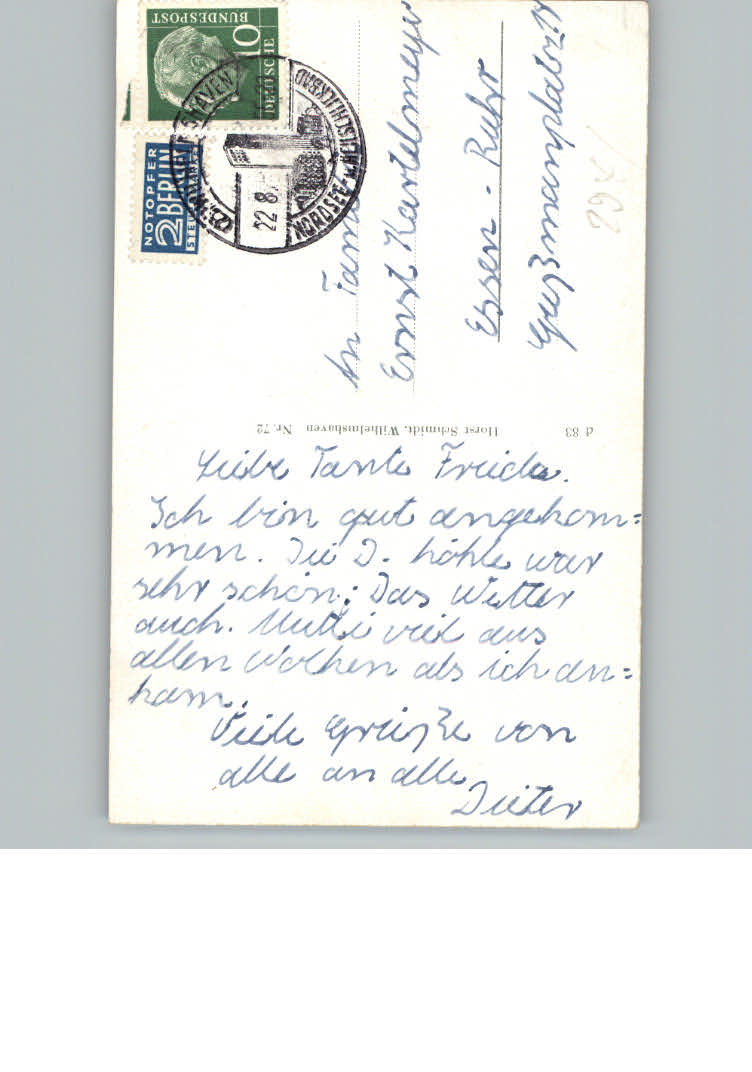 Liebe Tante Frieda.
Ich bin gut angekom=
men. Die D. höhle war
sehr schön; Das Wetter
auch. Mutti viel aus
allen Wolken als ich an=
kam.
Viele Grüße von
alle an alle
Dieter
An Fam
Ernst Kartelmeyer
Essen - Ruhr
1762
Horst Schmidt, Wilhelmshaven Nr. 72
d 83
DEUTSCHE
BUNDESPOST
10
NOTOPFER
2 BERLIN
STEUERMARKE
WILHELMSHAVEN
NORDSEE- u. MILCHSCHLICKBAD
22 8